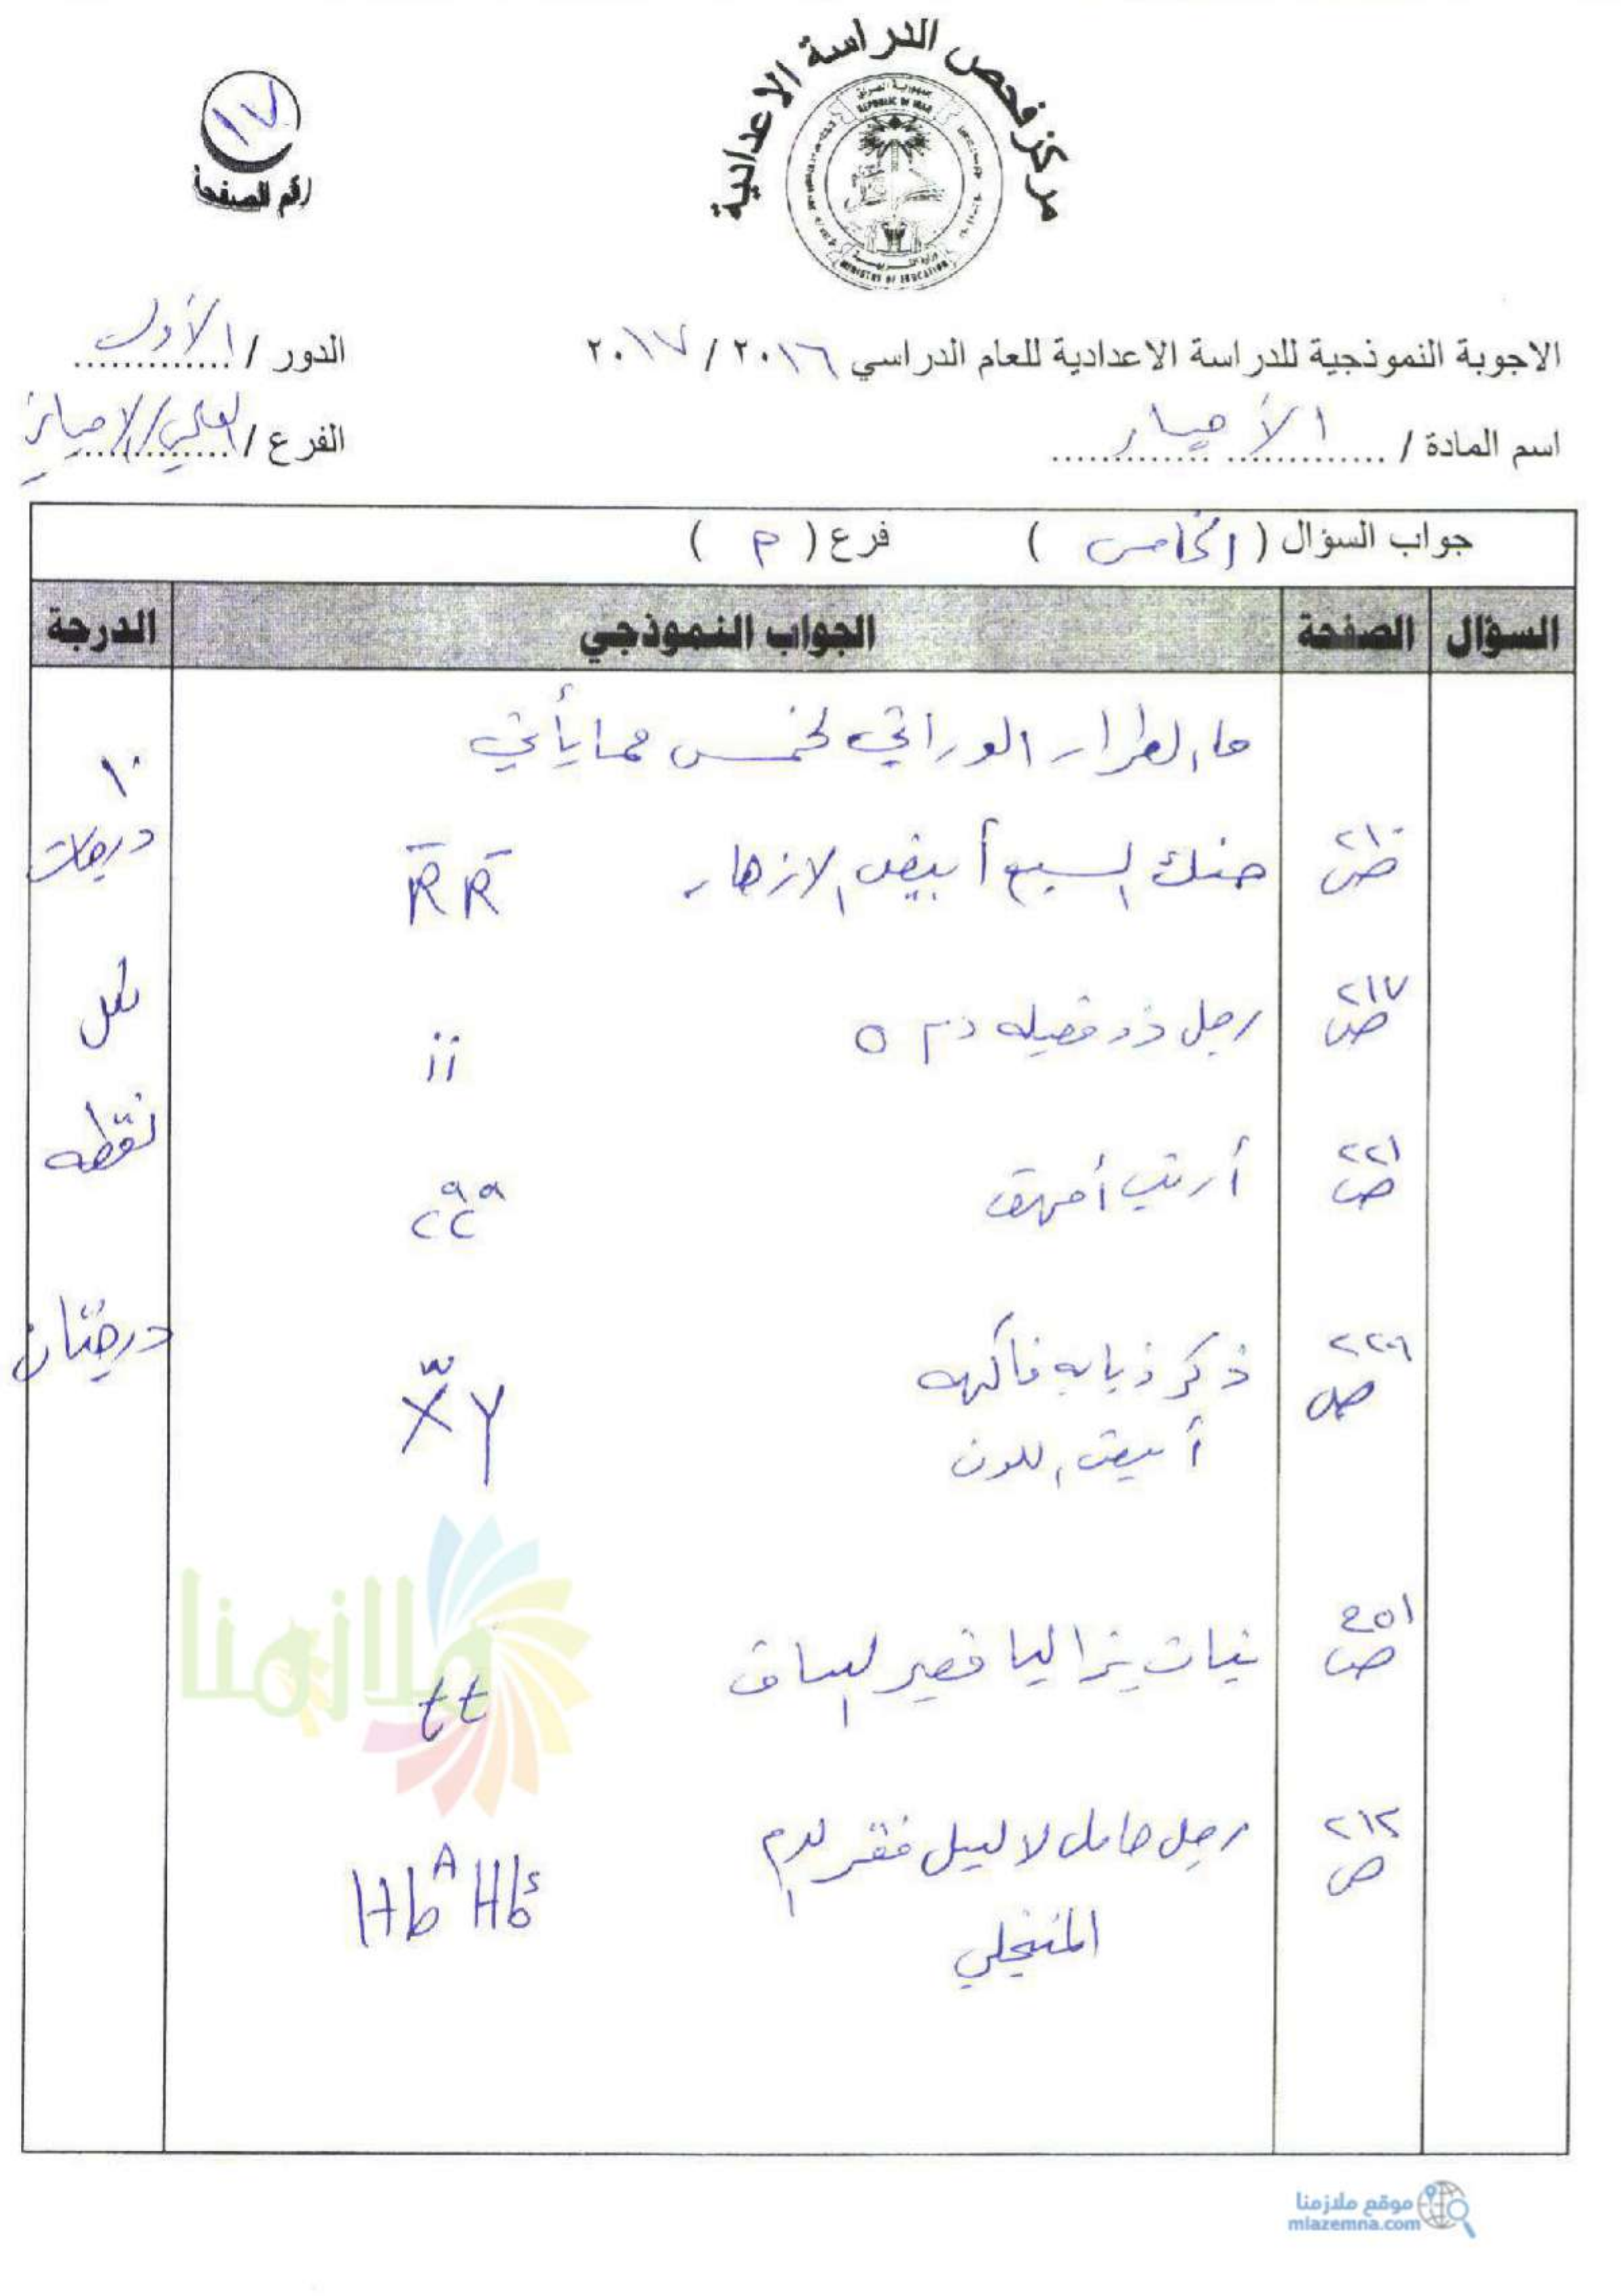 مركز فحص الدراسة الاعدادية
جمهورية العراق
REPUBLIC OF IRAQ
MINISTRY OF EDUCATION
١٧
رقم الصفحة
الاجوبة النموذجية للدراسة الاعدادية للعام الدراسي ٢٠١٦ / ٢٠١٧
الدور / الأول
اسم المادة / الأحياء
الفرع / العلمي / الاحيائي
جواب السؤال ( الخامس ) فرع ( م )
السؤال الصفحة الجواب النموذجي الدرجة
ما الطراز الوراثي لخمس مما يأتي
١٠ درجات
ص ٢١٠ حنك السبع أبيض الازهار R̄ R̄
ص ٢١٧ رجل ذو فصيله دم O ii
لكل
نقطه
ص ٢٢١ أرنب أمهق cᵃcᵃ
درجتان
ص ٢٢٩ ذكر ذبابه فاكهه
أبيض اللون XʷY
ص ٢٥١ نبات بزاليا قصير الساق tt
ص ٢١٢ رجل حامل لا ليل فقر الدم
المنجلي HbᴬHbˢ
ملازمنا
موقع ملازمنا
mlazemna.com